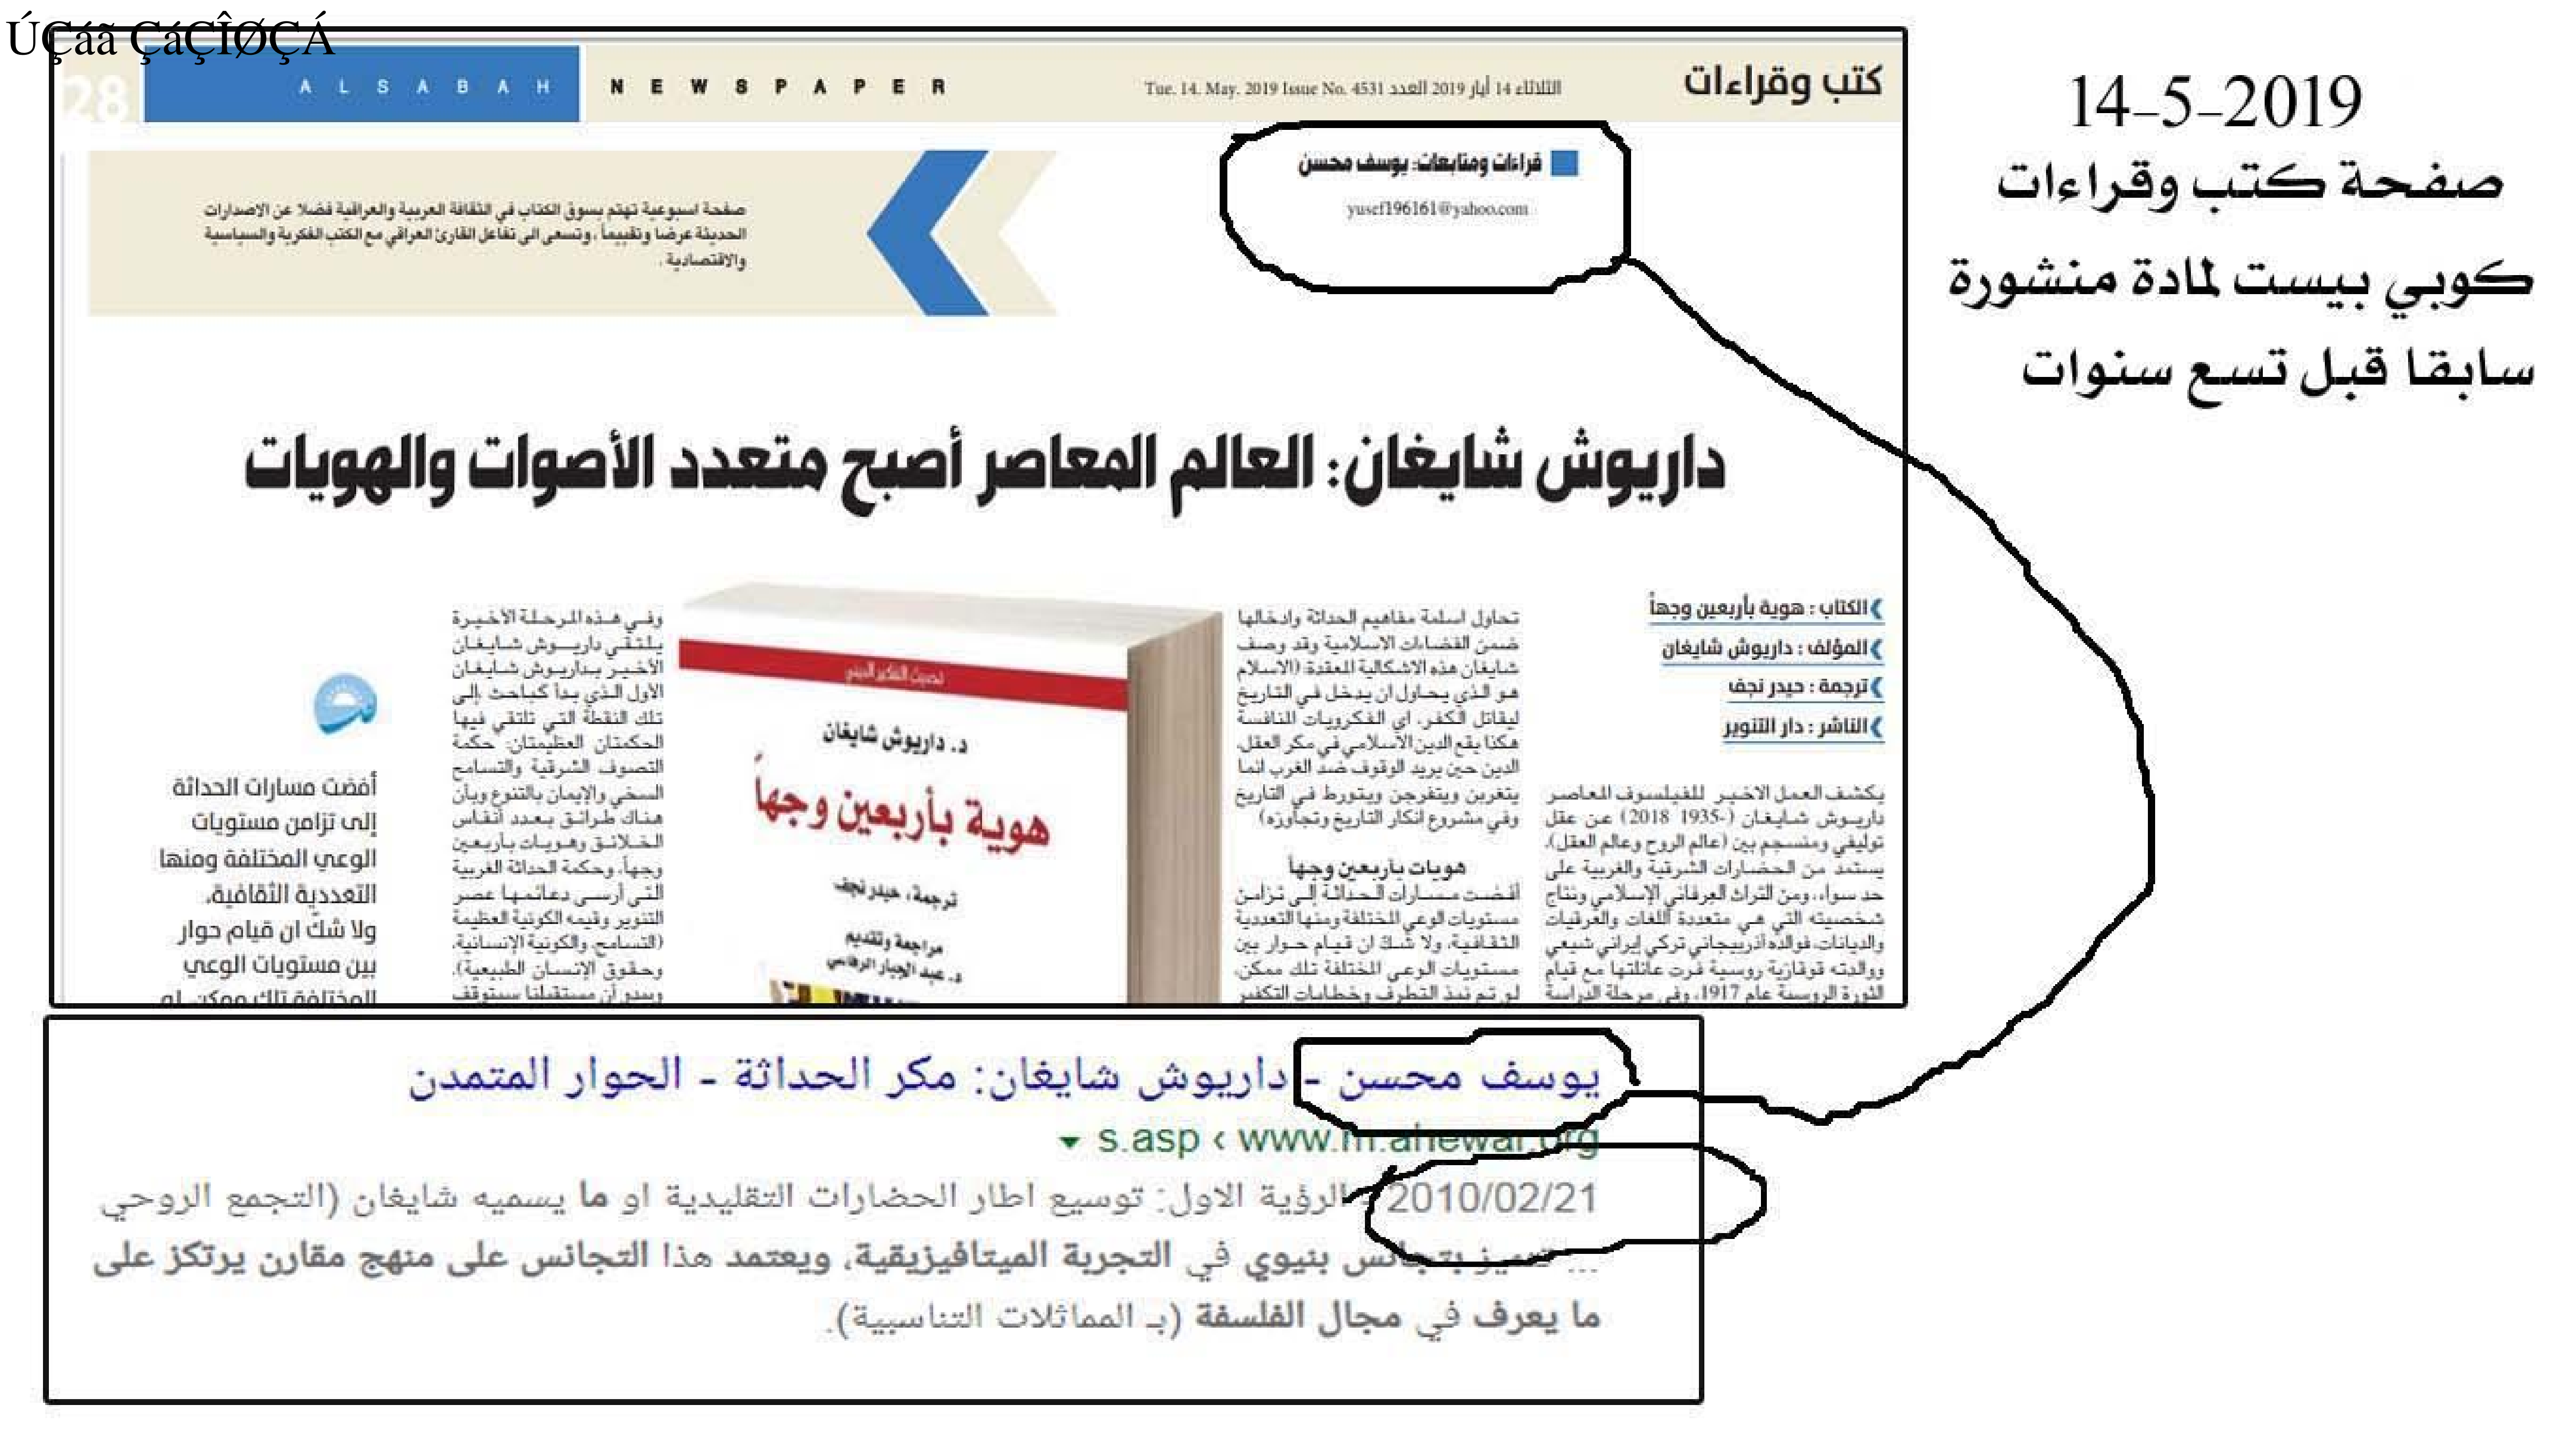 ÚÇáã ÇáÇÎØÇÁ
28
ALSABAH NEWSPAPER
Tue. 14. May. 2019 Issue No. 4531 الثلاثاء 14 أيار 2019 العدد
كتب وقراءات
14-5-2019
صفحة كتب وقراءات
كوبي بيست لمادة منشورة
سابقا قبل تسع سنوات
قراءات ومتابعات: يوسف محسن
yusef196161@yahoo.com
صفحة اسبوعية تهتم بسوق الكتاب في الثقافة العربية والعراقية فضلا عن الاصدارات
الحديثة عرضا وتقييماً ، وتسعى الى تفاعل القارئ العراقي مع الكتب الفكرية والسياسية
والاقتصادية .
داريوش شايغان: العالم المعاصر أصبح متعدد الأصوات والهويات
الكتاب : هوية بأربعين وجهاً
المؤلف : داريوش شايغان
ترجمة : حيدر نجف
الناشر : دار التنوير
يكشف العمل الاخير للفيلسوف المعاصر
داريوش شايغان (-1935 2018) عن عقل
توليفي ومنسجم بين (عالم الروح وعالم العقل).
يستمد من الحضارات الشرقية والغربية على
حد سواء، ومن التراث العرفاني الإسلامي ونتاج
شخصيته التي هي متعددة اللغات والعرقيات
والديانات، فوالده أذربيجاني تركي إيراني شيعي
ووالدته قوقازية روسية فرت عائلتها مع قيام
الثورة الروسية عام 1917، وفي مرحلة الدراسة
تحاول اسلمة مفاهيم الحداثة وادخالها
ضمن الفضاءات الاسلامية وقد وصف
شايغان هذه الاشكالية المعقدة (الاسلام
هو الذي يحاول ان يدخل في التاريخ
ليقاتل الكفر، اي الفكرويات المنافسة
هكذا يقع الدين الاسلامي في مكر العقل،
الدين حين يريد الوقوف ضد الغرب انما
يتغربن ويتفرجن ويتورط في التاريخ
وفي مشروع انكار التاريخ وتجاوزه)
هويات بأربعين وجهاً
أفضت مسارات الحداثة إلى تزامن
مستويات الوعي المختلفة ومنها التعددية
الثقافية، ولا شك ان قيام حوار بين
مستويات الوعي المختلفة تلك ممكن،
لو تم نبذ التطرف وخطابات التكفير
د. داريوش شايغان
هوية بأربعين وجهاً
ترجمة، حيدر نجف
مراجعة وتقديم
د. عبد الجبار الرفاعي
وفي هذه المرحلة الأخيرة
يلتقي داريوش شايغان
الأخير بداريوش شايغان
الأول الذي بدأ كباحث إلى
تلك النقطة التي تلتقي فيها
الحكمتان العظيمتان: حكمة
التصوف الشرقية والتسامح
السخي والإيمان بالتنوع وبأن
هناك طرائق بعدد أنفاس
الخلائق وهويات بأربعين
وجهاً، وحكمة الحداثة الغربية
التي أرسى دعائمها عصر
التنوير وقيمه الكونية العظيمة
(التسامح والكونية الإنسانية،
وحقوق الإنسان الطبيعية).
ويبدو أن مستقبلنا سيتوقف
أفضت مسارات الحداثة
إلى تزامن مستويات
الوعي المختلفة ومنها
التعددية الثقافية،
ولا شكّ ان قيام حوار
بين مستويات الوعي
المختلفة تلك ممكن، لو
يوسف محسن - داريوش شايغان: مكر الحداثة - الحوار المتمدن
s.asp ‹ www.m.ahewar.org
2010/02/21 - الرؤية الاول: توسيع اطار الحضارات التقليدية او ما يسميه شايغان (التجمع الروحي
... تتميز بتجانس بنيوي في التجربة الميتافيزيقية، ويعتمد هذا التجانس على منهج مقارن يرتكز على
ما يعرف في مجال الفلسفة (بـ المماثلات التناسبية).